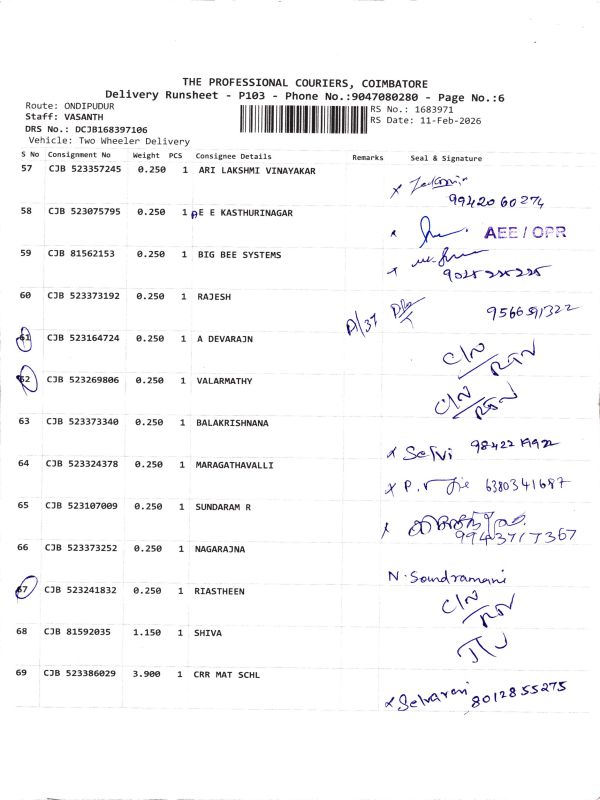 THE PROFESSIONAL COURIERS, COIMBATORE
Delivery Runsheet - P103 - Phone No.:9047080280 - Page No.:6
Route: ONDIPUDUR
RS No.: 1683971
Staff: VASANTH
RS Date: 11-Feb-2026
DRS No.: DCJB168397106
Vehicle: Two Wheeler Delivery
S No Consignment No Weight PCS Consignee Details Remarks Seal & Signature
57 CJB 523357245 0.250 1 ARI LAKSHMI VINAYAKAR
9942060274
58 CJB 523075795 0.250 1 E E KASTHURINAGAR
AEE / OPR
59 CJB 81562153 0.250 1 BIG BEE SYSTEMS
60 CJB 523373192 0.250 1 RAJESH
9566591322
61 CJB 523164724 0.250 1 A DEVARAJN
C/N
RTN
62 CJB 523269806 0.250 1 VALARMATHY
C/N
RTN
63 CJB 523373340 0.250 1 BALAKRISHNANA
x Selvi
64 CJB 523324378 0.250 1 MARAGATHAVALLI
6380341687
65 CJB 523107009 0.250 1 SUNDARAM R
9943717367
66 CJB 523373252 0.250 1 NAGARAJNA
N. Soundramani
67 CJB 523241832 0.250 1 RIASTHEEN
C/N
68 CJB 81592035 1.150 1 SHIVA
69 CJB 523386029 3.900 1 CRR MAT SCHL
x Selvarani 8012855275